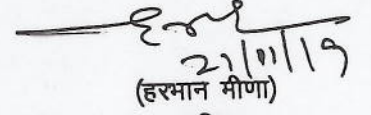 21/01/19
(हरभान मीणा)